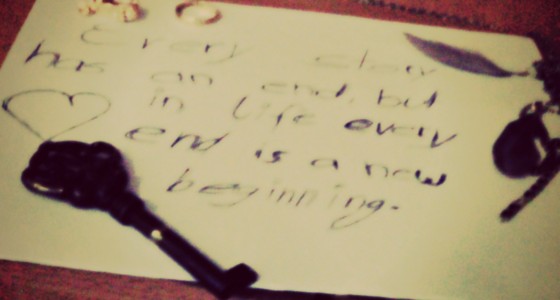 Every story
has an end, but
in life every
end is a new
beginning.